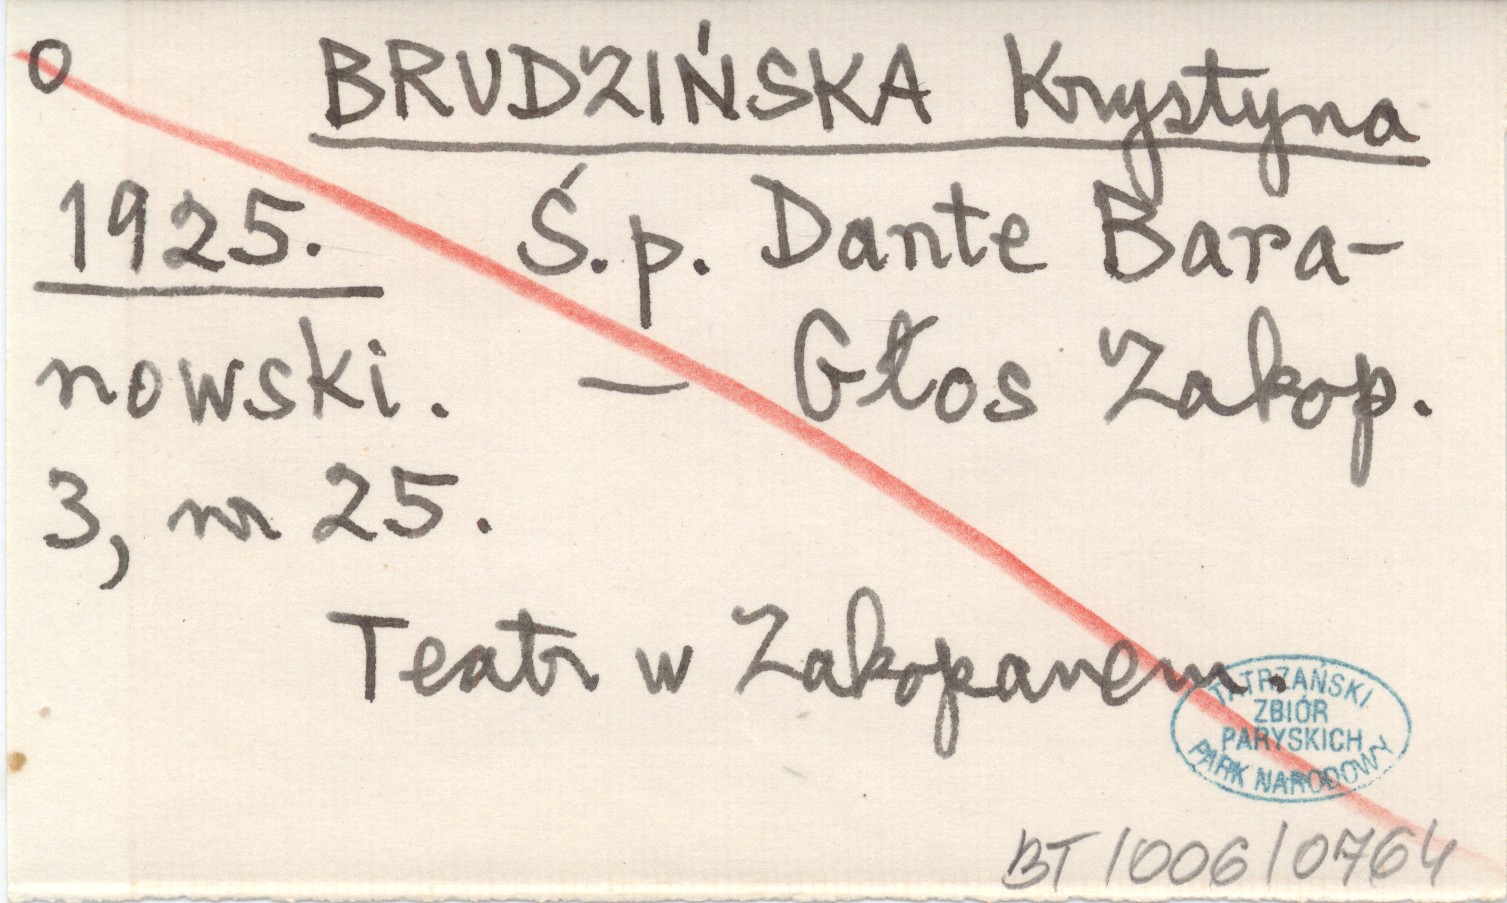 O BRUDZIŃSKA Krystyna
1925. Ś.p. Dante Bara-
nowski. — Głos Zakop.
3, nr 25.
Teatr w Zakopanem.
TATRZAŃSKI
ZBIÓR
PARYSKICH
PARK NARODOWY
BT/006/0764